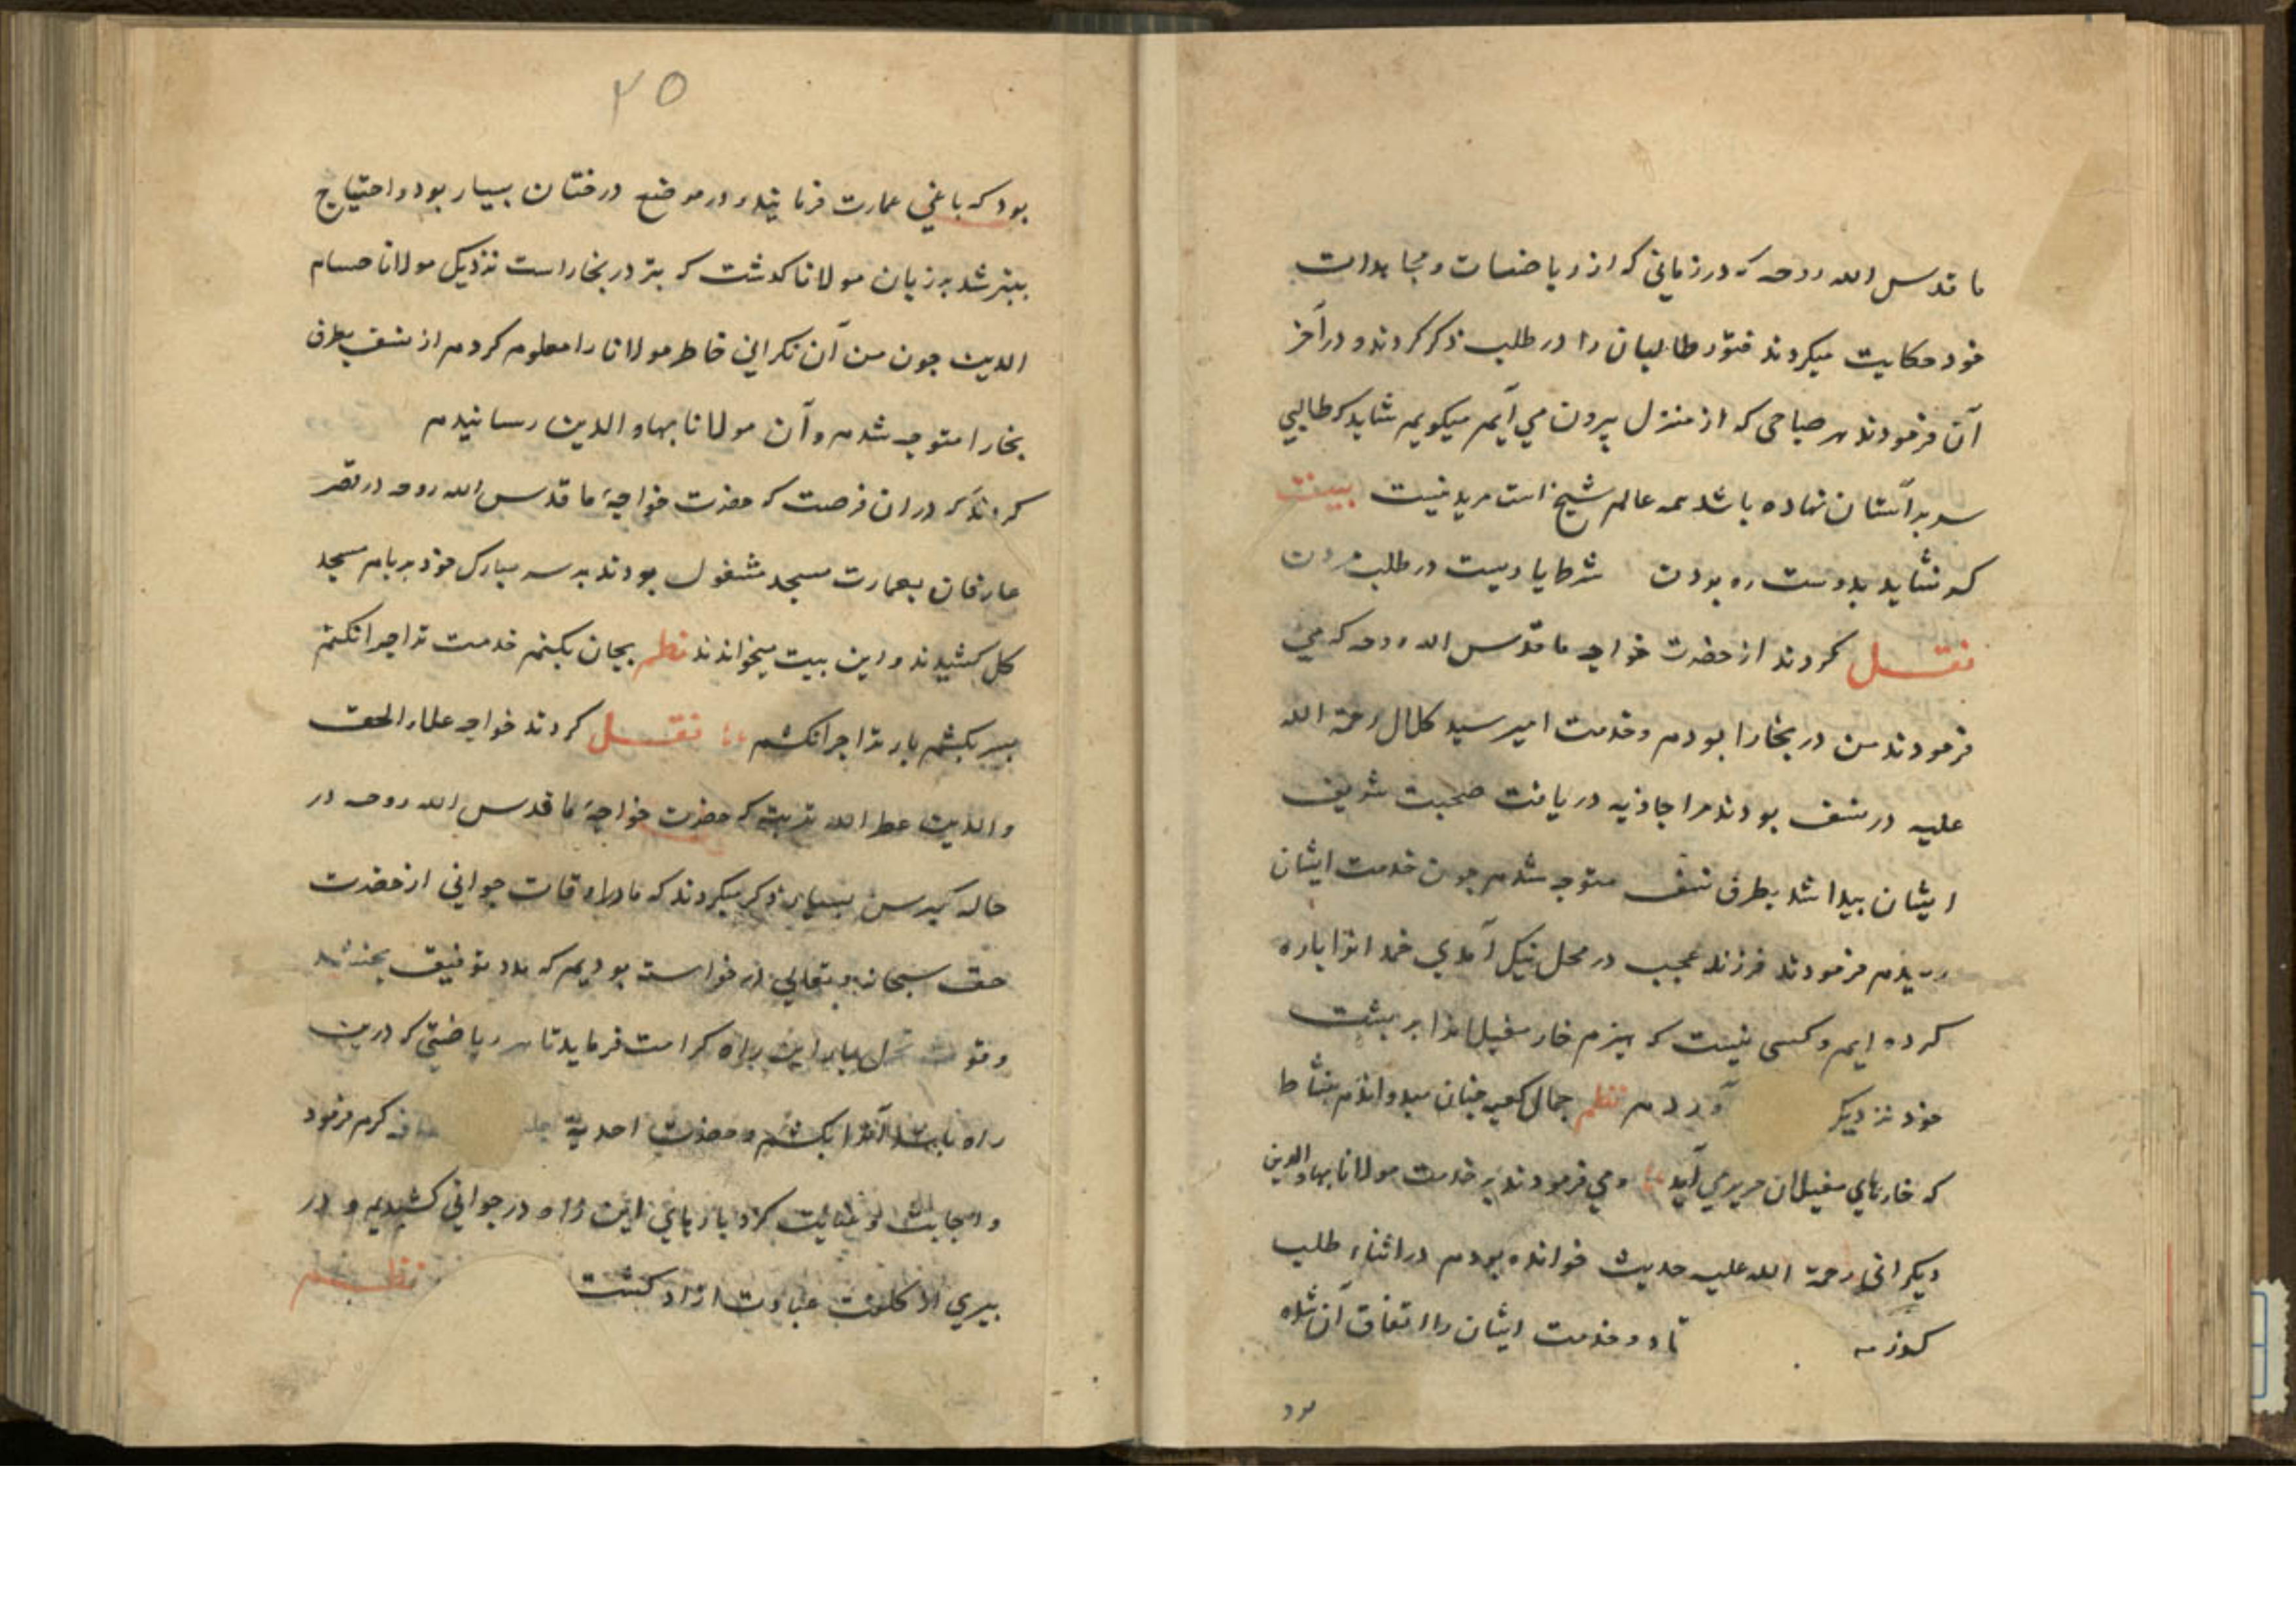 ما قدس الله روحه که در زمانی که از ریاضات و مجاهدات
خود حکایت میکردند فتور طالبان را در طلب ذکر کردند و در آخر
آن فرمودند هر صباحی که از منزل بیرون می آیم میکویم شاید که طالبی
سر بر آستان نهاده باشد همه عالم شیخ است مرید نیست بیت
کر نشاید بدوست ره بودن شرط یاریست در طلب مردن
نقل کردند از حضرت خواجه ما قدس الله روحه که می
فرمودند من در بخارا بودم و خدمت امیر سید کلال رحمة الله
علیه در نسف بودند مرا جاذبه دریافت صحبت شریف
ایشان پیدا شد بطرف نسف متوجه شدم چون خدمت ایشان
رسیدم فرمودند فرزند عجب در محل نیک آمدی خمدانرا پاره
کرده ایم و کسی نیست که هیزم خار مغیلانرا بر پشت
خود نزدیک آوردم نظم جمال کعبه چنان میدواندم بنشاط
که خارهای مغیلان حریری آید و می فرمودند بر خدمت مولانا بهاو الدین
دیکرانی رحمة الله علیه حدیث خوانده بودم در اثناء طلب
کوزه تاد و خدمت ایشان را اتفاق آن شده
بود
۲۵
بود که باغی عمارت فرمایند و در موضع درختان بسیار بود و احتیاج
بتبر شد بر زبان مولانا کذشت که تبر در بخارا است نزدیک مولانا حسام
الدین چون من آن نکرانی خاطر مولانا را معلوم کردم از نسف بطرف
بخارا متوجه شدم و آن مولانا بهاو الدین رسانیدم
کردند که در ان فرصت که حضرت خواجهٔ ما قدس الله روحه در قصر
عارفان بعمارت مسجد مشغول بودند بر سر مبارک خود بر بام مسجد
کل کشیدند و این بیت میخواندند نظم بجان بکنم خدمت تراجرا نکنم
بسر بکشم بار تراجرا نکشم نقل کردند خواجه علاء الحق
والدین عطر الله تربته که حضرت خواجهٔ ما قدس الله روحه در
حاله کبر سن بسیار ذکر میکردند که ما در اوقات جوانی از حضرت
حق سبحانه و تعالی در خواست بودیم که مدد توفیق بخشد
وقوت تحمل بار این راه کرامت فرماید تا هر ریاضتی که درین
راه باشد آنرا بکشم و حضرت احدیة کرم فرمود
و اجابت و عنایت کرد بارهای این راه در جوانی کشیدیم و در
پیری از کلفت عبادت ازاد کشت نظم